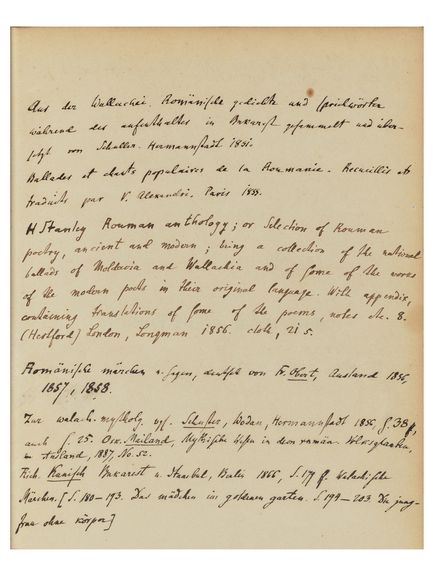 Aus der Wallachei. Romänische gedichte und sprichwörter
während des aufenthaltes in Bukarest gesammelt und über-
setzt von Schuller. Hermannstadt 1851.
Ballades et chants populaires de la Roumanie. Recueillis et
traduits par V. Alexandri. Paris 1855.
H Stanley Rouman anthology; or Selection of Rouman
poetry, ancient and modern; being a collection of the national
ballads of Moldavia and Wallachia and of some of the works
of the modern poets in their original language. With appendix,
containing translations of some of the poems, notes etc. 8.
(Hertford) London, Longman 1856. cloth, 21 s.
Romänische märchen u. sagen, deutsch von Fr. Obert, Ausland 1856,
1857, 1858.
Zur walach. mytholog. vgl. Schuster, Wodan, Hermannstadt 1856, S. 38 ff,
auch S. 25. Osc. Mailand, Mythische Wesen in dem rumän. Volksglauben,
in Ausland, 1887, No. 52.
Rich. Kunisch Bukarest u. Stambul, Berlin 1866, S. 179 ff. Walachische
Märchen. [S. 180–193. Das mädchen im goldenen garten. S. 199–203. Die jung-
frau ohne körper]